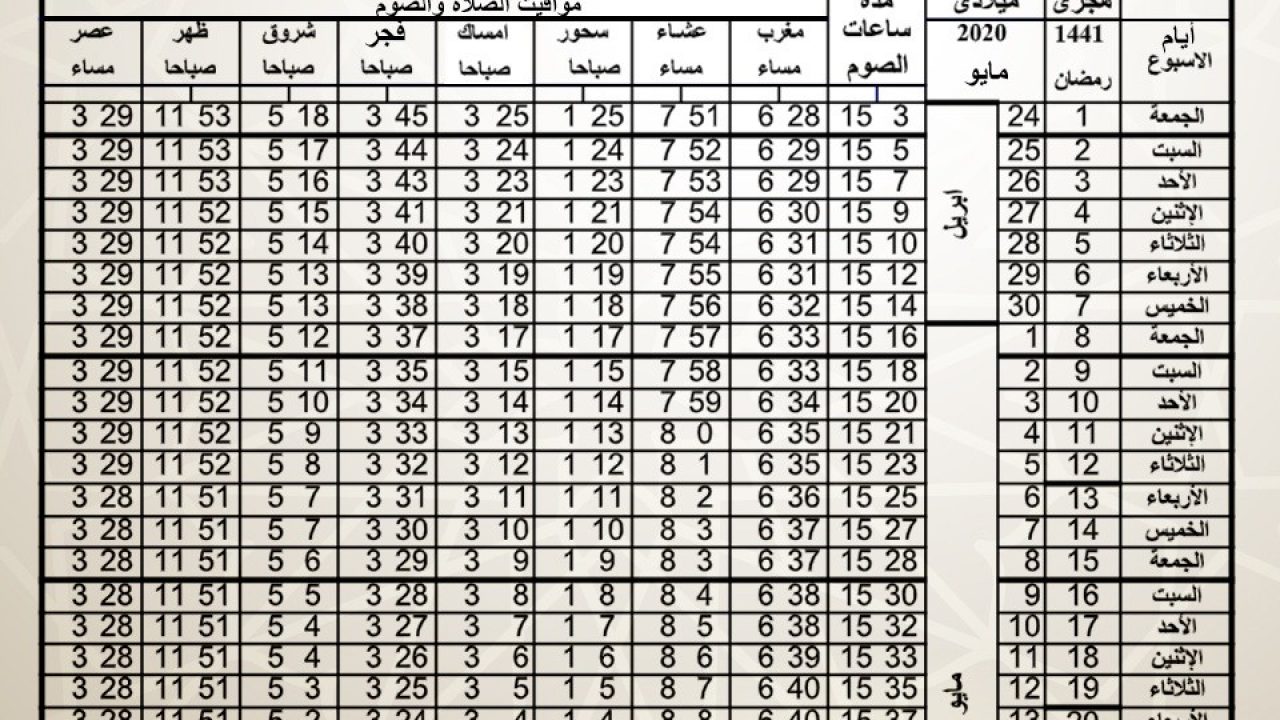 مواقيت الصلاة والصوم
هجرى ميلادى مدة
أيام الاسبوع 1441 رمضان 2020 مايو ساعات الصوم مغرب مساء عشاء مساء سحور صباحا امساك صباحا فجر صباحا شروق صباحا ظهر صباحا عصر مساء
ابريل
مايو
الجمعة 1 24 15 3 6 28 7 51 1 25 3 25 3 45 5 18 11 53 3 29
السبت 2 25 15 5 6 29 7 52 1 24 3 24 3 44 5 17 11 53 3 29
الأحد 3 26 15 7 6 29 7 53 1 23 3 23 3 43 5 16 11 53 3 29
الإثنين 4 27 15 9 6 30 7 54 1 21 3 21 3 41 5 15 11 52 3 29
الثلاثاء 5 28 15 10 6 31 7 54 1 20 3 20 3 40 5 14 11 52 3 29
الأربعاء 6 29 15 12 6 31 7 55 1 19 3 19 3 39 5 13 11 52 3 29
الخميس 7 30 15 14 6 32 7 56 1 18 3 18 3 38 5 13 11 52 3 29
الجمعة 8 1 15 16 6 33 7 57 1 17 3 17 3 37 5 12 11 52 3 29
السبت 9 2 15 18 6 33 7 58 1 15 3 15 3 35 5 11 11 52 3 29
الأحد 10 3 15 20 6 34 7 59 1 14 3 14 3 34 5 10 11 52 3 29
الإثنين 11 4 15 21 6 35 8 0 1 13 3 13 3 33 5 9 11 52 3 29
الثلاثاء 12 5 15 23 6 35 8 1 1 12 3 12 3 32 5 8 11 52 3 29
الأربعاء 13 6 15 25 6 36 8 2 1 11 3 11 3 31 5 7 11 51 3 28
الخميس 14 7 15 27 6 37 8 3 1 10 3 10 3 30 5 7 11 51 3 28
الجمعة 15 8 15 28 6 37 8 3 1 9 3 9 3 29 5 6 11 51 3 28
السبت 16 9 15 30 6 38 8 4 1 8 3 8 3 28 5 5 11 51 3 28
الأحد 17 10 15 32 6 38 8 5 1 7 3 7 3 27 5 4 11 51 3 28
الإثنين 18 11 15 33 6 39 8 6 1 6 3 6 3 26 5 4 11 51 3 28
الثلاثاء 19 12 15 35 6 40 8 7 1 5 3 5 3 25 5 3 11 51 3 28
الأربعاء 20 13 15 37 6 40 8 8 1 4 3 4 3 24 5 2 11 51 3 28